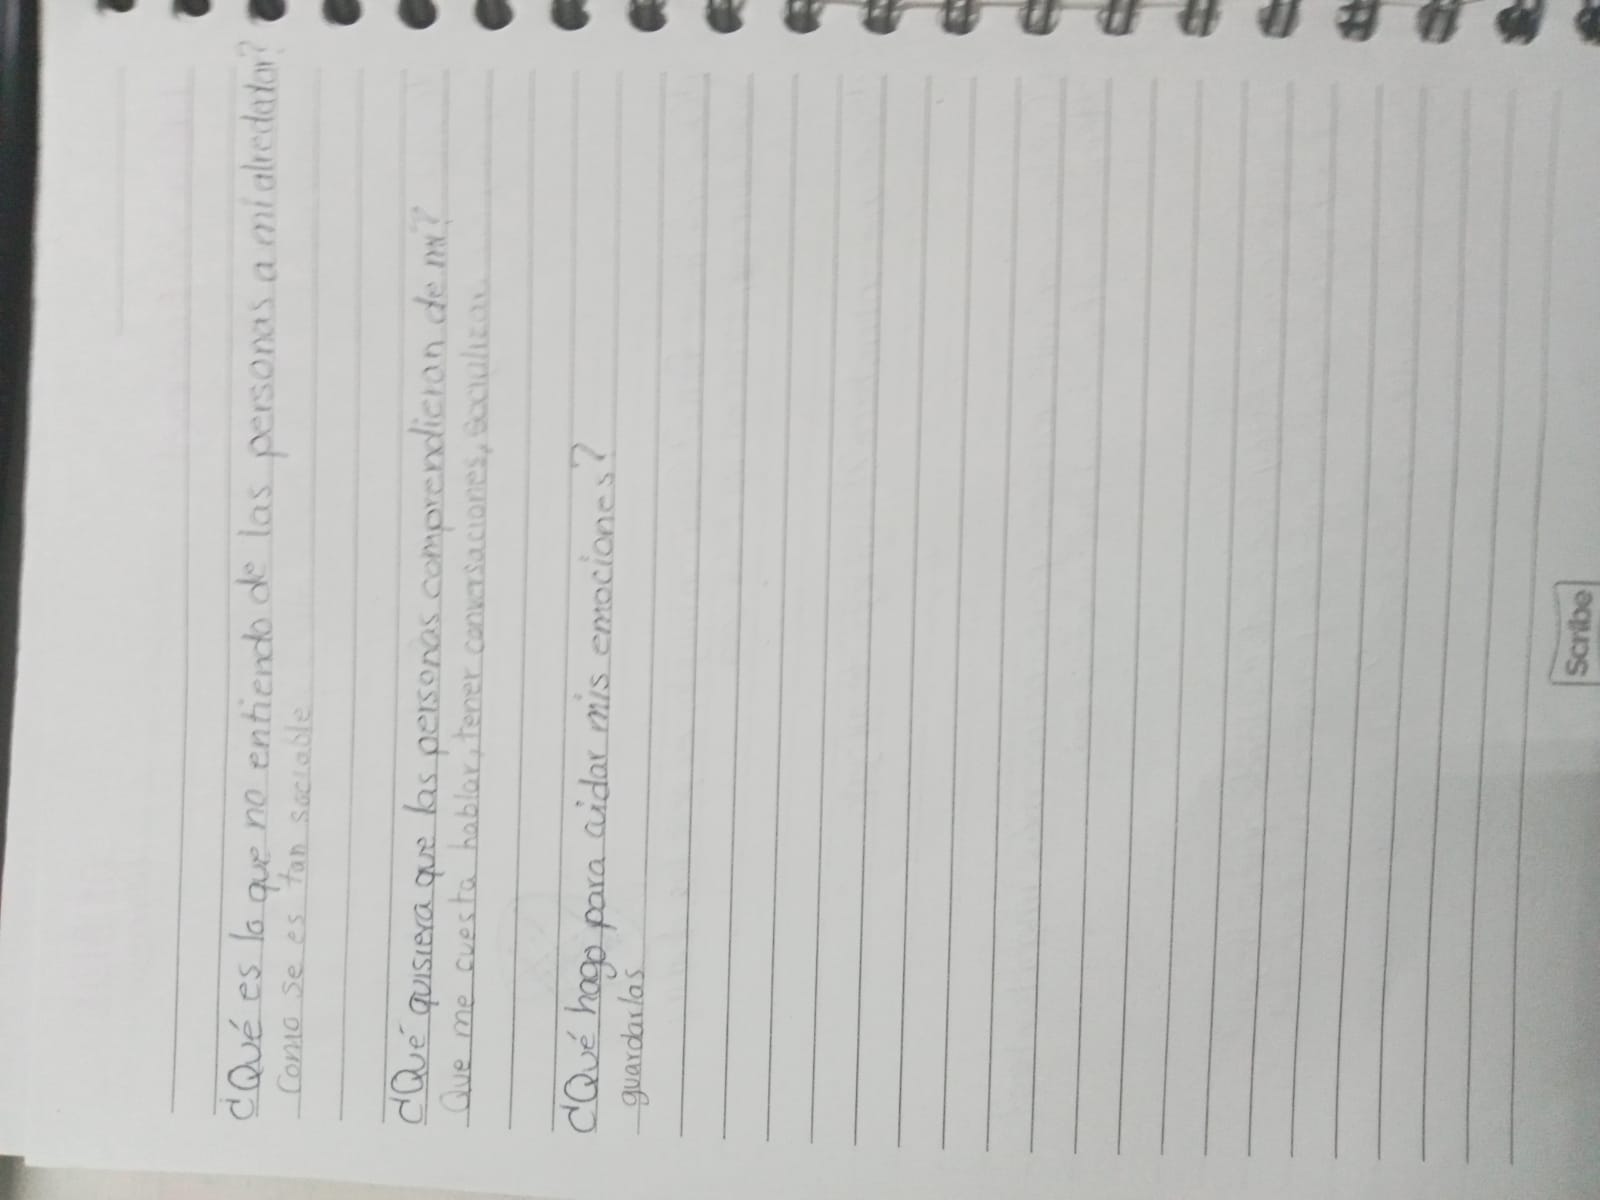 ¿Qué es lo que no entiendo de las personas a mi alrededor?
Como se es tan sociable
¿Qué quisiera que las personas comprendieran de mi?
Que me cuesta hablar, tener conversaciones, socializar.
¿Qué hago para cuidar mis emociones?
guardarlas
Scribe